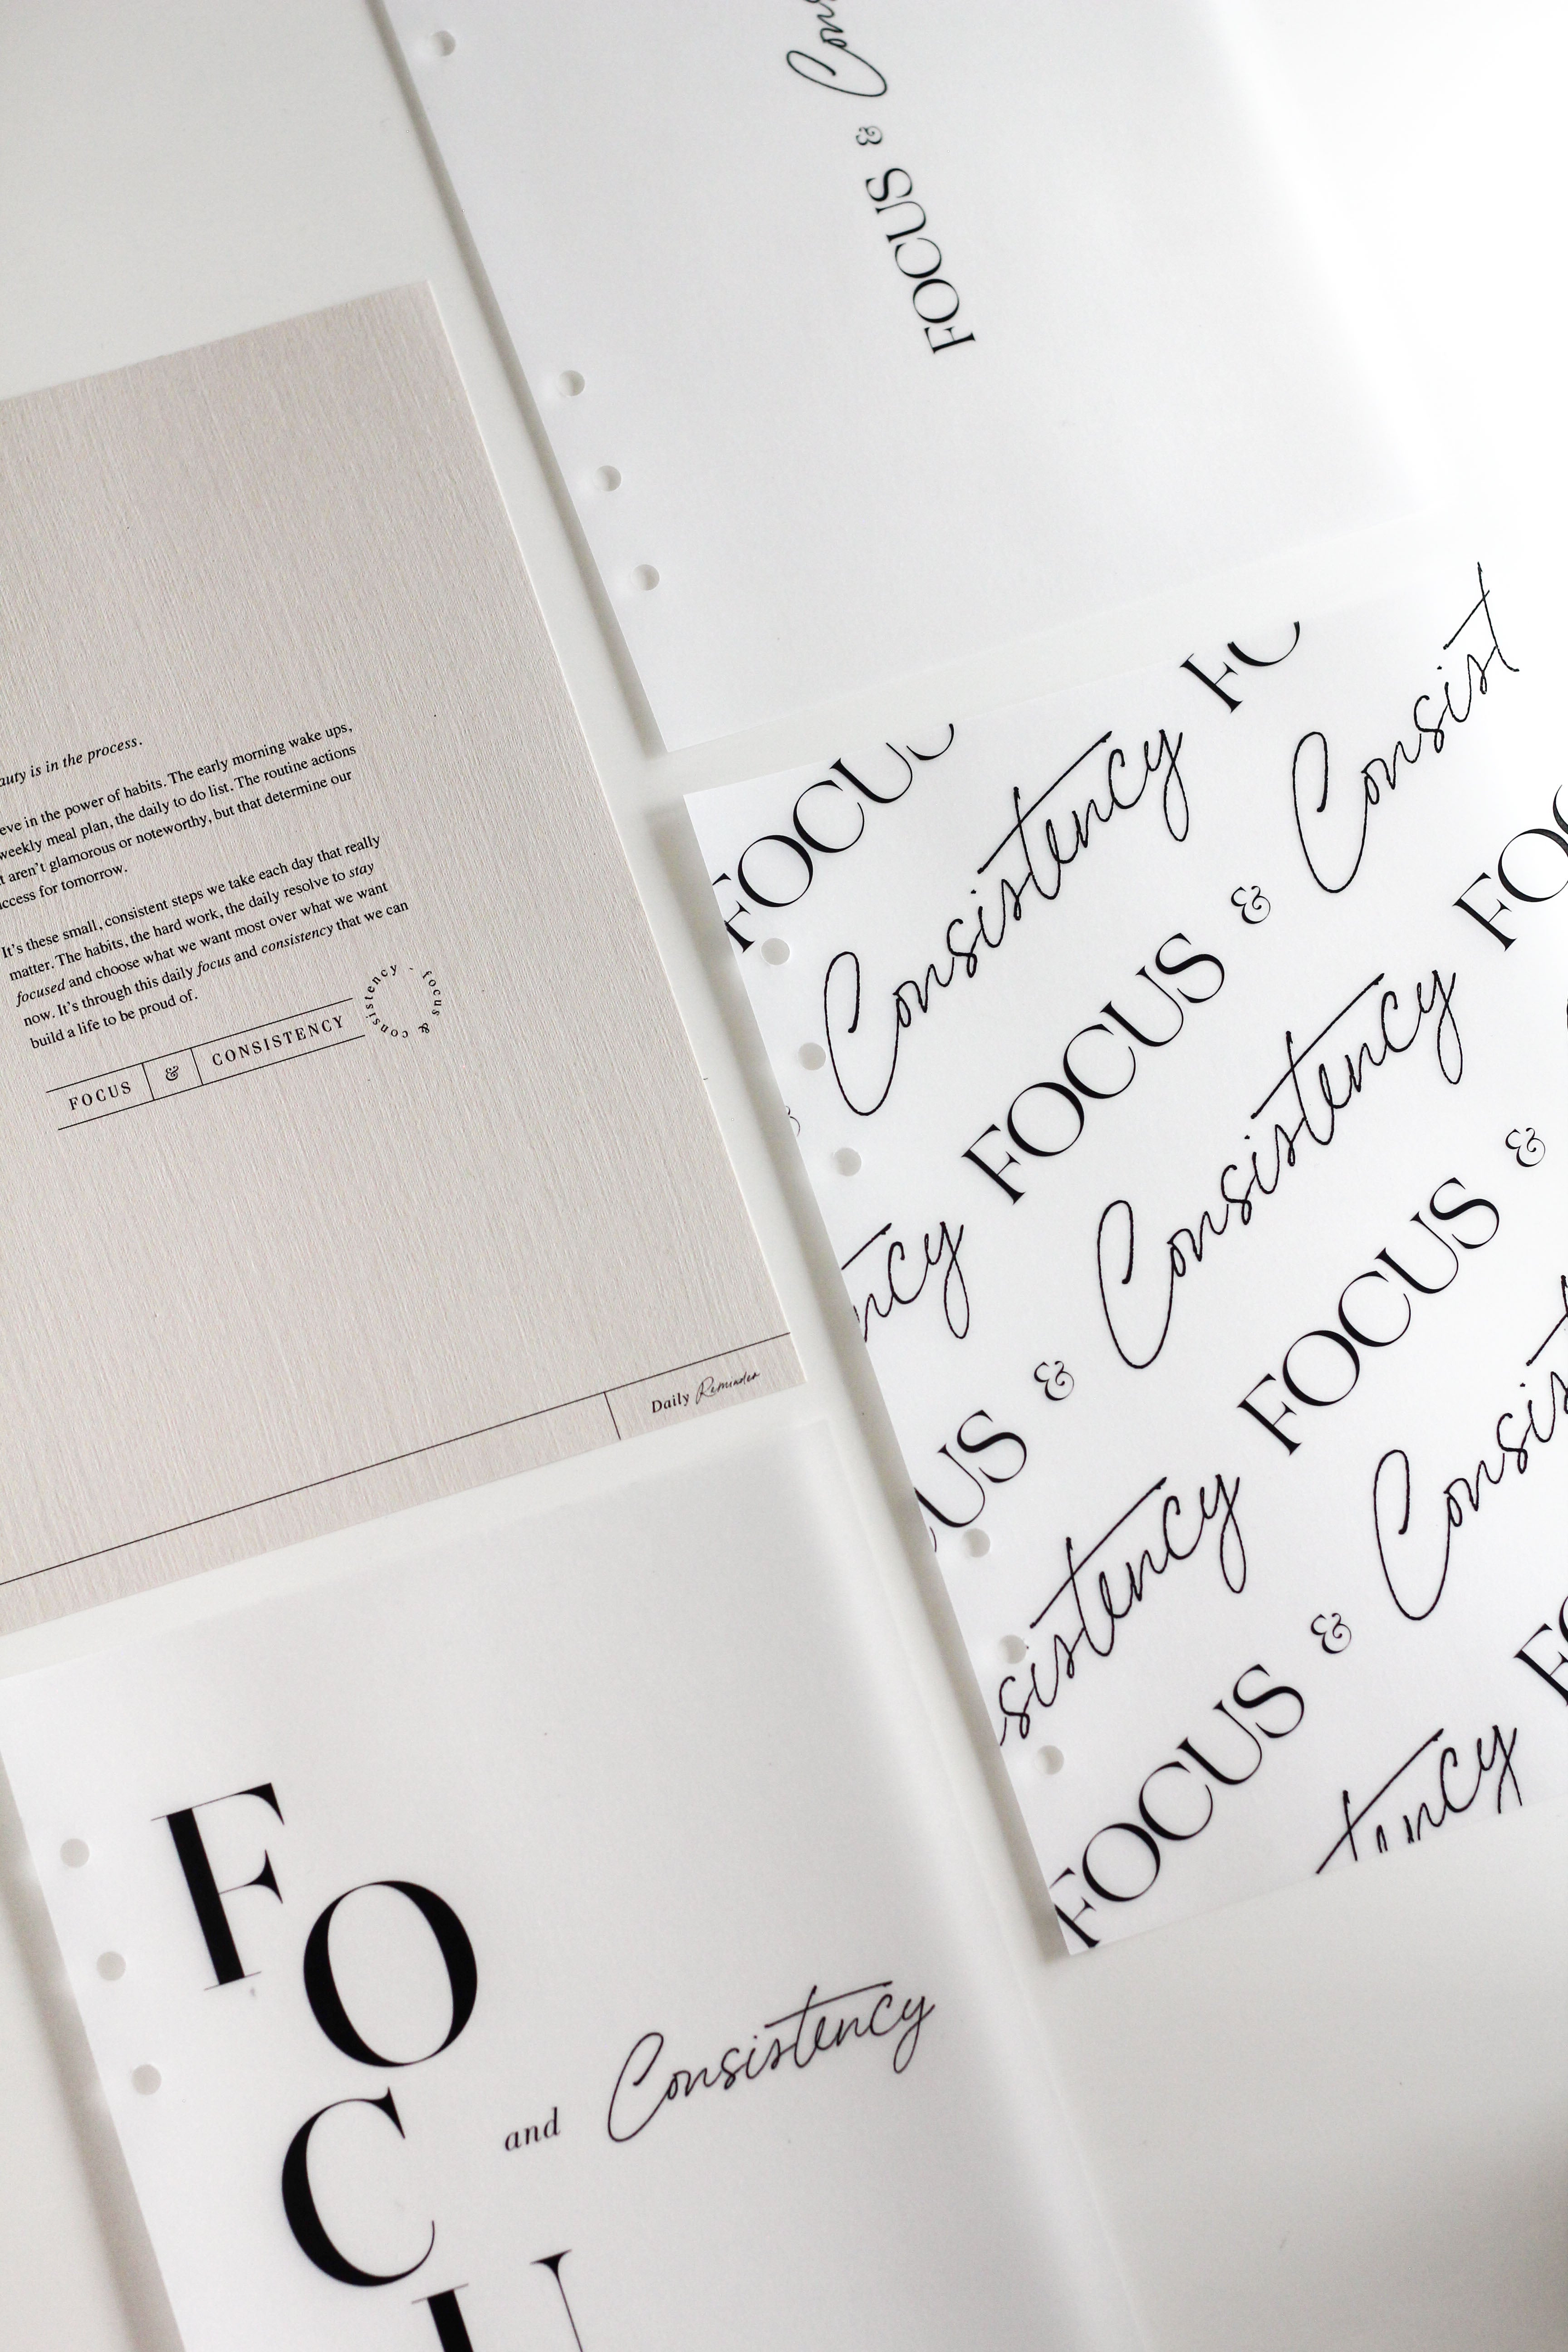 FOCUS &
is in the process.
in the power of habits. The early morning wake ups,
weekly meal plan, the daily to do list. The routine actions
aren't glamorous or noteworthy, but that determine our
for tomorrow.
It's these small, consistent steps we take each day that really
matter. The habits, the hard work, the daily resolve to stay
focused and choose what we want most over what we want
now. It's through this daily focus and consistency that we can
build a life to be proud of.
FOCUS & CONSISTENCY
focus & consistency
Daily Reminder
Consistency
FOCUS & Consist
Consistency
FOCUS & Consistency
FOCUS &
FOCUS & Consis
FOCU
and Consistency